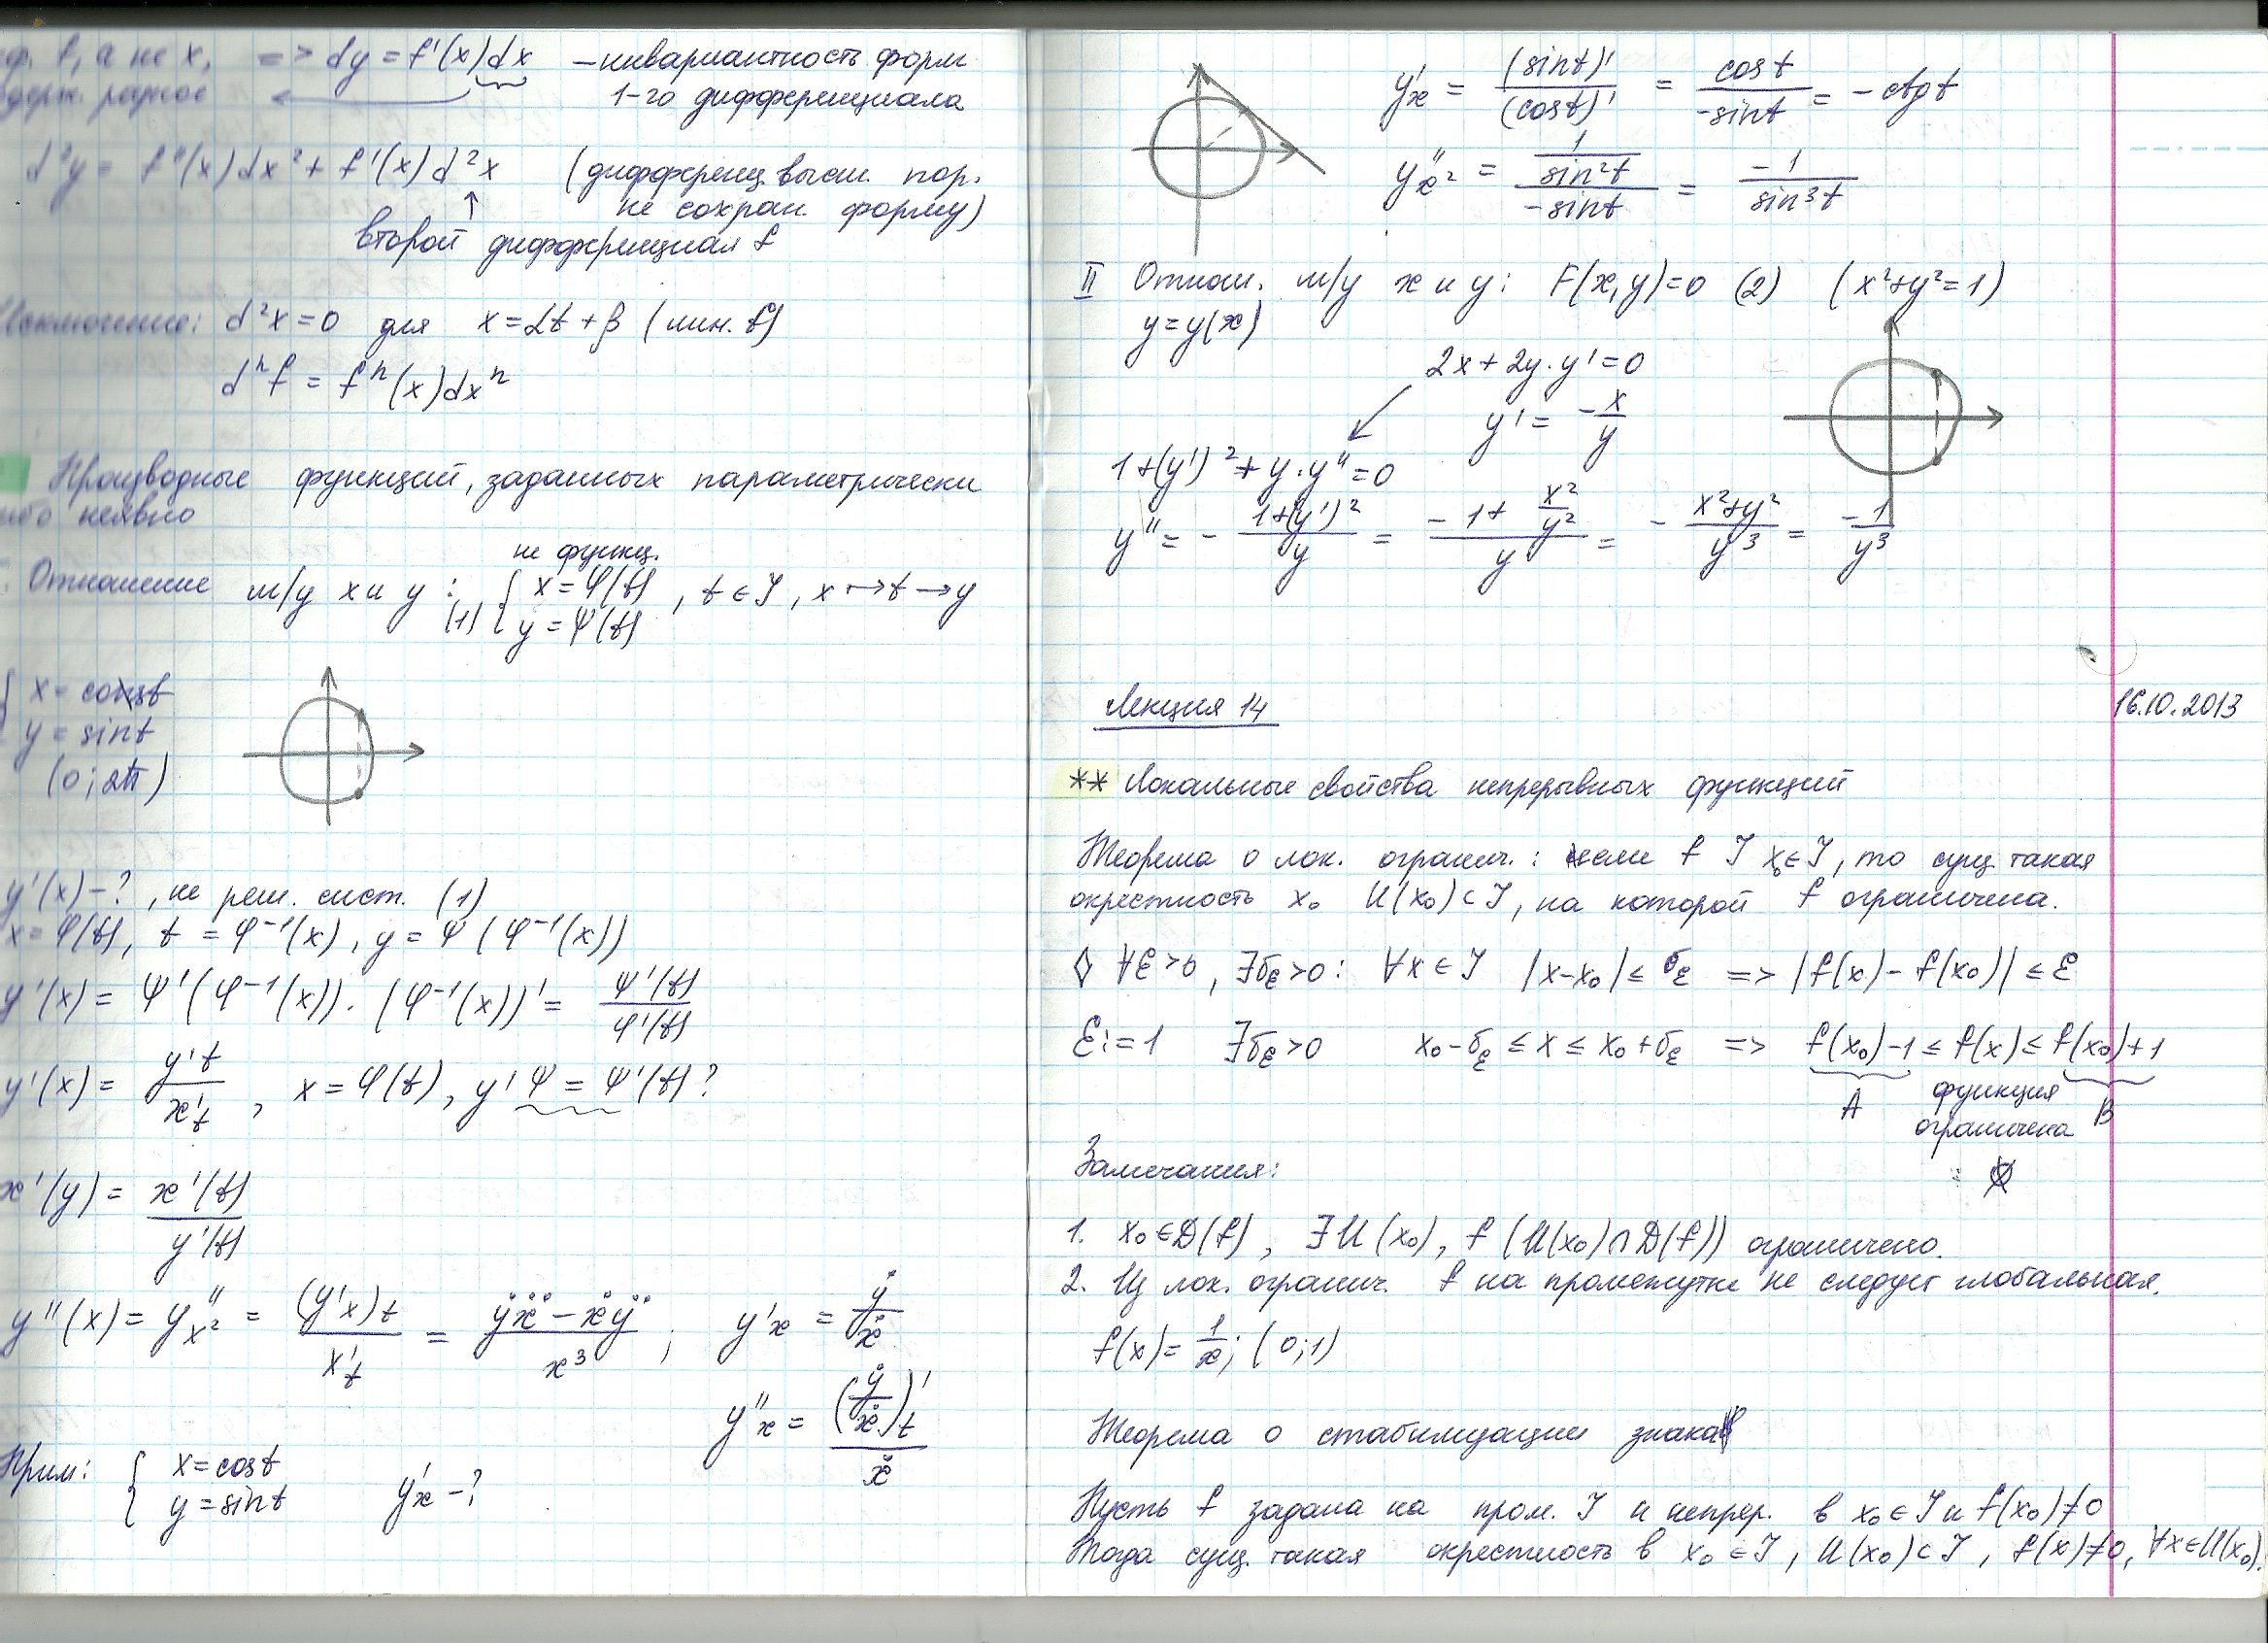 ф. t, а не x, => dy = f'(x)dx – инвариантность форм
держ. 1-го дифференциала
d²y = f''(x)dx² + f'(x)d²x (дифференц. высш. пор.
↑ не сохран. форму)
второй дифференциал f
Исключение: d²x=0 для x=αt+β (лин. f)
dⁿf = fⁿ(x)dxⁿ
Производные функций, заданных параметрически
либо неявно
не функц.
Отношение м/у x и y: (1) { x=φ(t) , t∈I, x↦t→y
y=ψ(t)
{ x= cost
y = sint
(0; 2π)
y'(x)-?, не реш. сист. (1)
x=φ(t), t = φ⁻¹(x), y=ψ(φ⁻¹(x))
y'(x) = ψ'(φ⁻¹(x))·(φ⁻¹(x))' = ψ'(t)/φ'(t)
y'(x) = y't/x't, x=φ(t), y'ψ = ψ'(t)?
x'(y) = x'(t)/y'(t)
y''(x) = y''x² = (y'x)t/x't = (ẏẍ – ẋÿ)/x³; y'x = ẏ/ẋ
y''x = (ẏ/ẋ)'t/ẋ
Прим: { x=cost
y=sint y'x -?
y'x = (sint)'/(cost)' = cost/-sint = -ctgt
y''x² = (1/sin²t)/-sint = -1/sin³t
II Отнош. м/у x и y: F(x,y)=0 (2) (x²+y²=1)
y=y(x)
2x+2y·y'=0
y' = -x/y
1+(y')²+y·y''=0
y''= - (1+(y')²)/y = (-1+x²/y²)/y = - (x²+y²)/y³ = -1/y³
Лекция 14 16.10.2013
** Локальные свойства непрерывных функций
Теорема о лок. огранич.: если f I x₀∈I, то сущ. такая
окрестность x₀ U(x₀)⊂I, на которой f ограничена.
◊ ∀ε>0, ∃δε>0: ∀x∈I |x-x₀|≤δε => |f(x)-f(x₀)|≤ε
ε:=1 ∃δε>0 x₀-δε≤x≤x₀+δε => f(x₀)-1≤f(x)≤f(x₀)+1
A функция B
ограничена
Замечания:
1. x₀∈D(f), ∃U(x₀), f(U(x₀)∩D(f)) ограничено.
2. Из лок. огранич. f на промежутке не следует глобальная.
f(x)=1/x; (0;1)
Теорема о стабилизации знака
Пусть f задана на пром. I и непрер. в x₀∈I и f(x₀)≠0
Тогда сущ. такая окрестность в x₀∈I, U(x₀)⊂I, f(x)≠0, ∀x∈U(x₀).